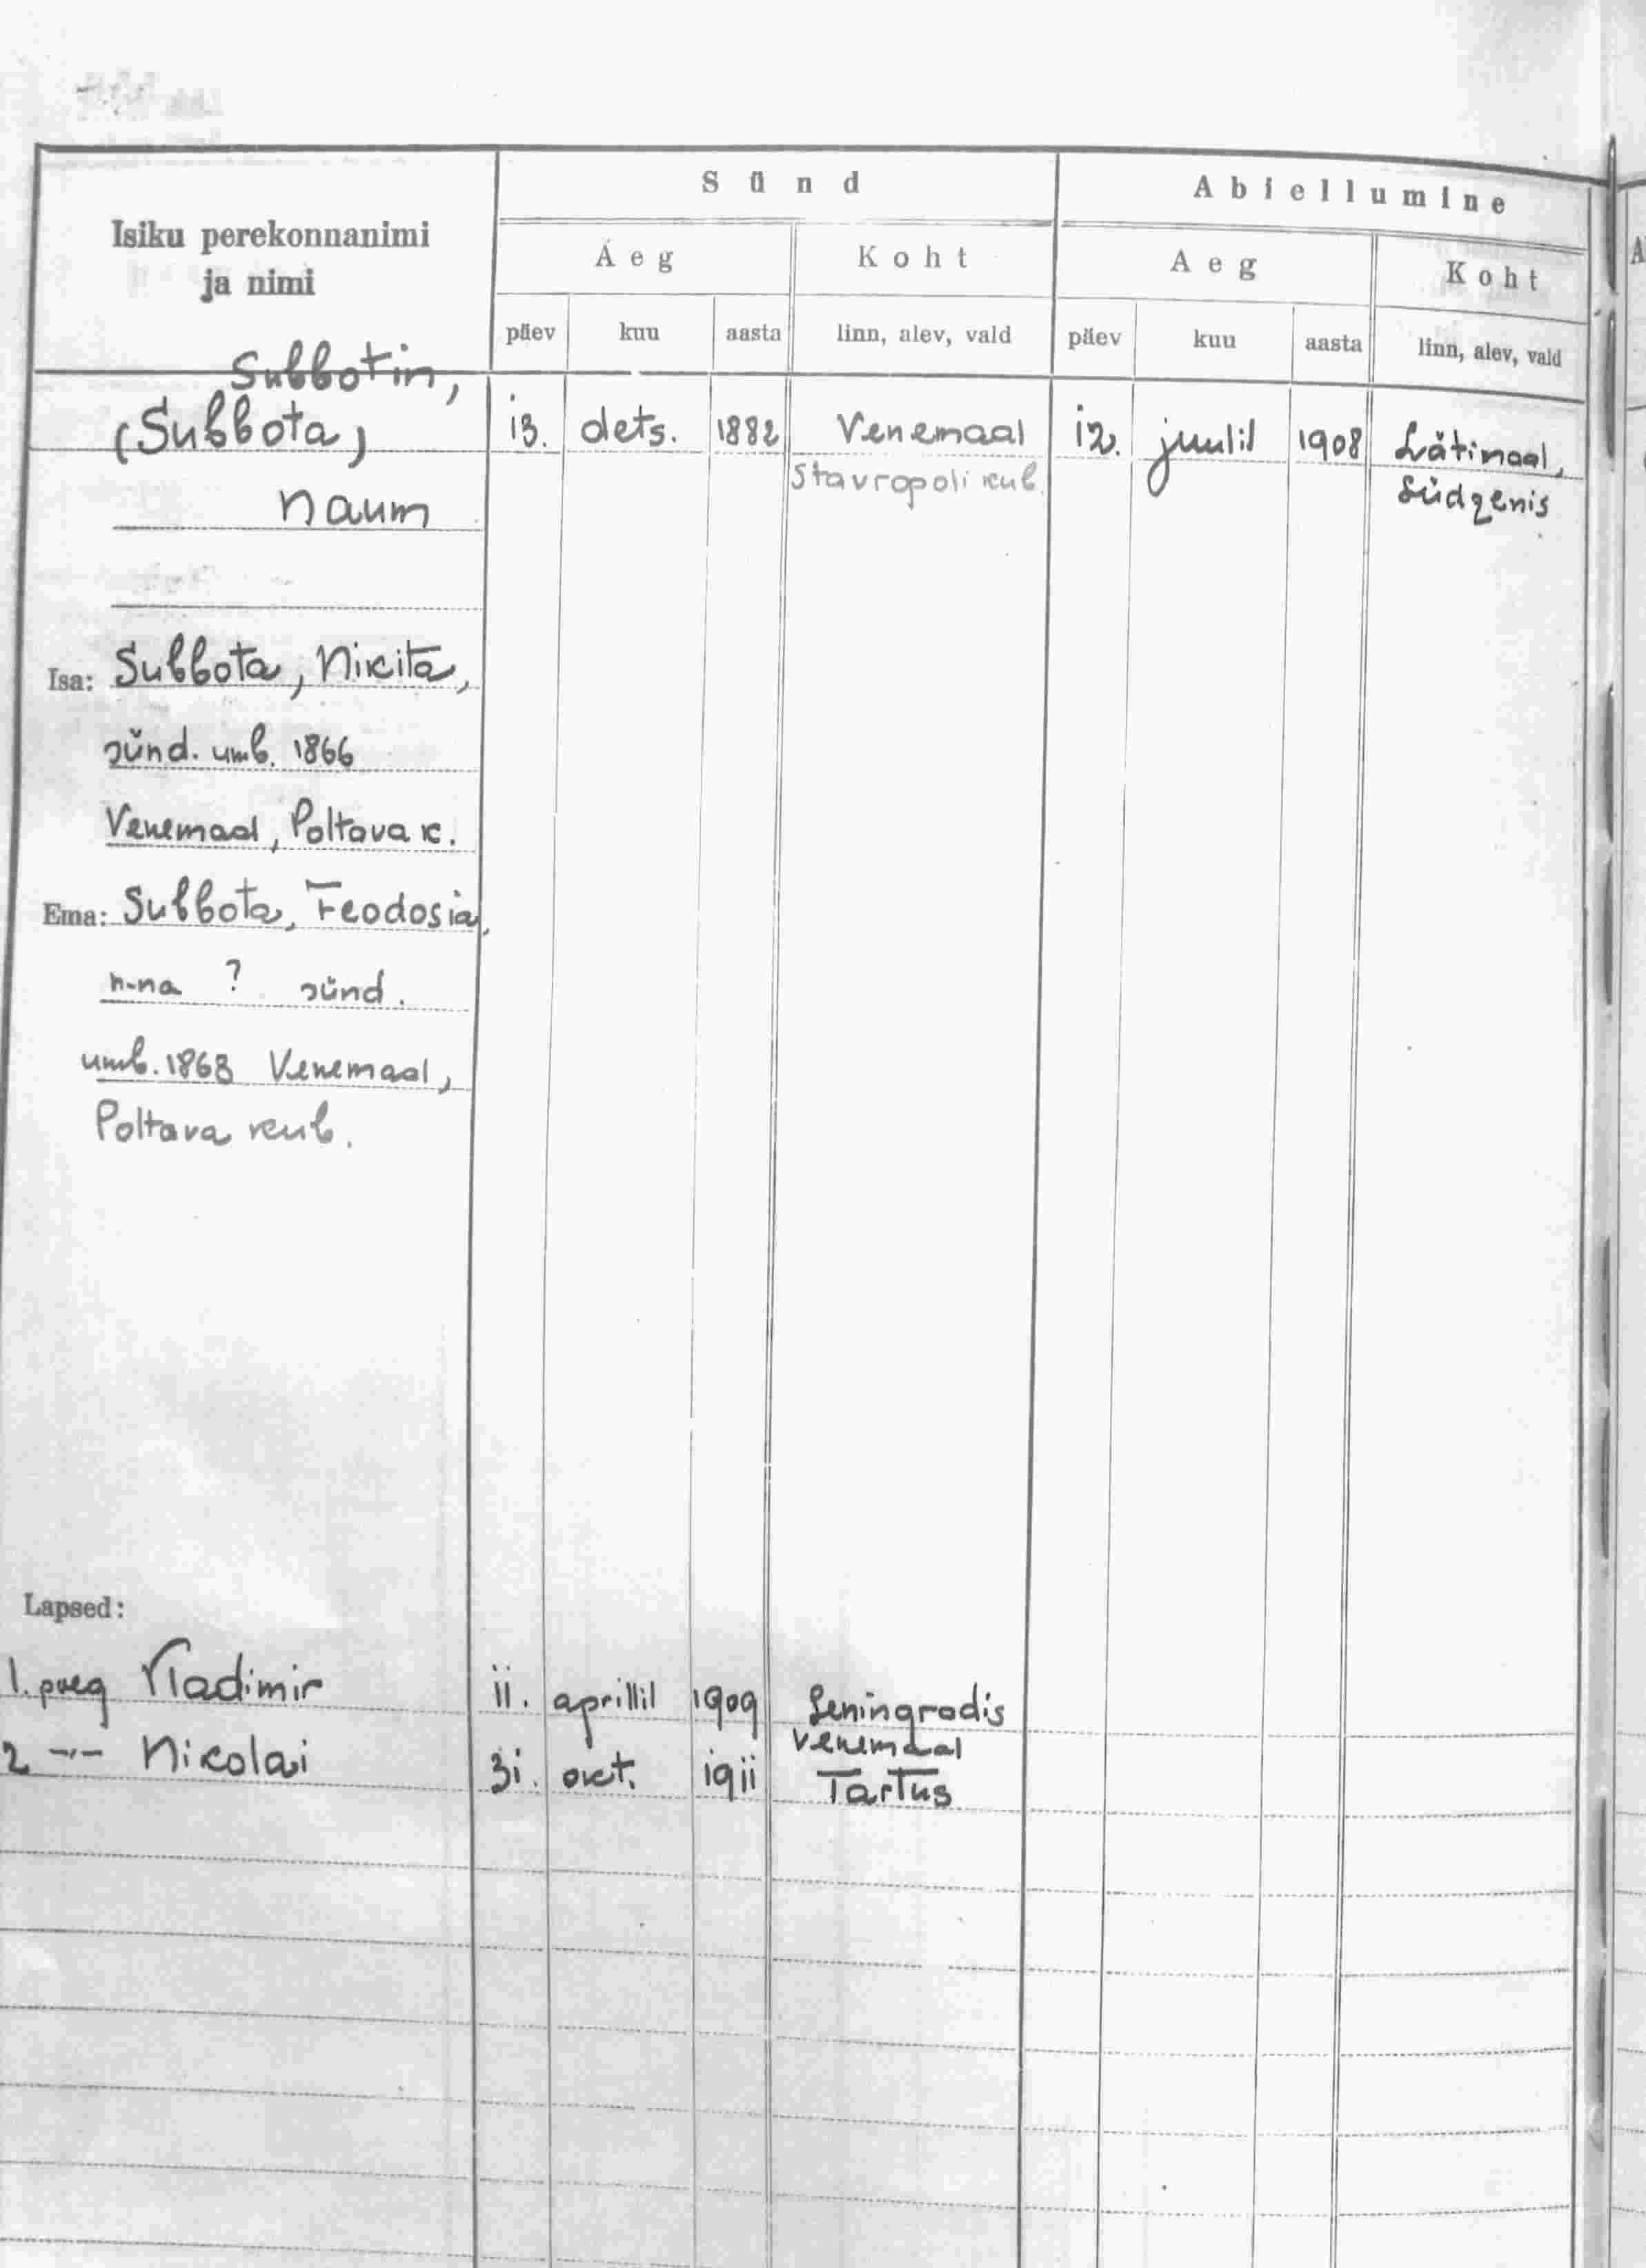 Isiku perekonnanimi
ja nimi
Sünd
Abiellumine
Aeg
Koht
Aeg
Koht
päev kuu aasta linn, alev, vald päev kuu aasta linn, alev, vald
Subbotin,
(Subbota) 13. dets. 1882 Venemaal 12. juulil 1908 Lätimaal,
Stavropoli kub. Südgenis
Naum
Isa: Subbota, Nikita,
sünd. umb. 1866
Venemaal, Poltava k.
Ema: Subbota, Feodosia,
n-na ? sünd.
umb. 1863 Venemaal,
Poltava kub.
Lapsed:
1. poeg Vladimir 11. aprillil 1909 Leningradis
Venemaal
2 -"- Nikolai 31. okt. 1911 Tartus